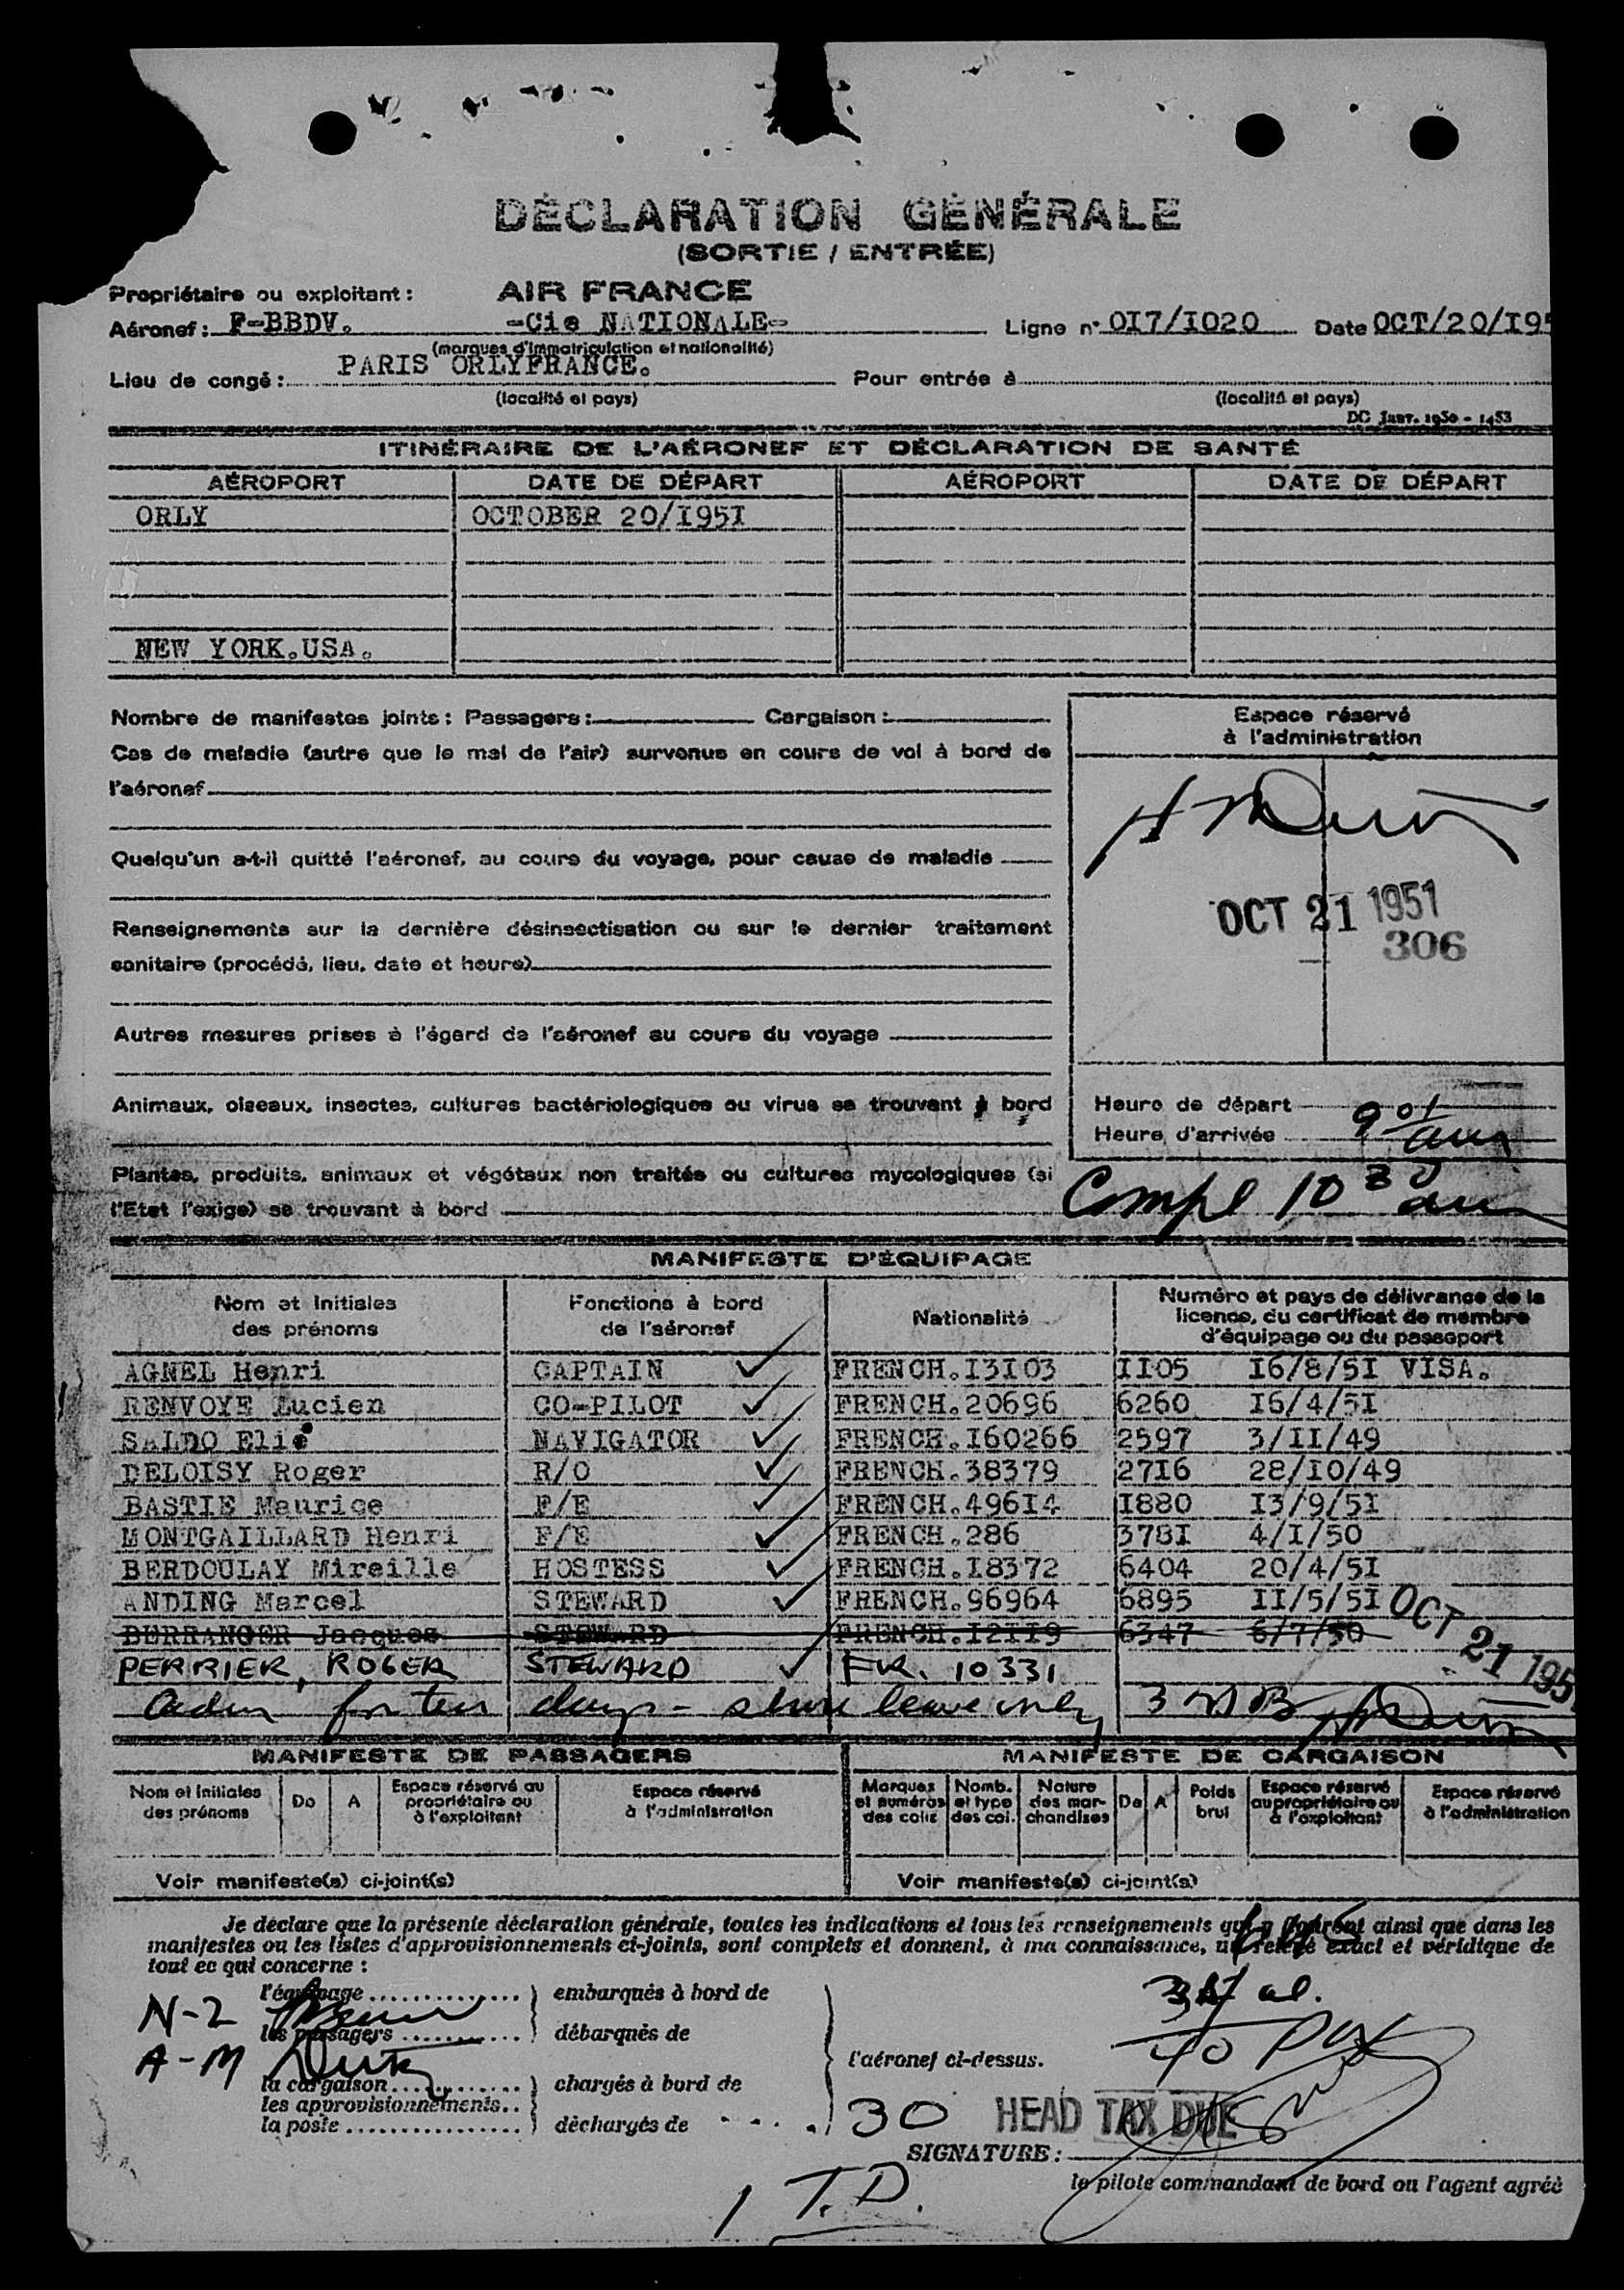 DÉCLARATION GÉNÉRALE
(SORTIE / ENTRÉE)
Propriétaire ou exploitant : AIR FRANCE
Aéronef : F-BBDV. -Cie NATIONALE- Ligne n° OI7/IO20 Date OCT/20/I95
(marques d'immatriculation et nationalité)
Lieu de congé : PARIS ORLYFRANCE. Pour entrée à
(localité et pays) (localité et pays)
DG Janv. 1950 - 1453
ITINÉRAIRE DE L'AÉRONEF ET DÉCLARATION DE SANTÉ
AÉROPORT DATE DE DÉPART AÉROPORT DATE DE DÉPART
ORLY OCTOBER 20/I95I
NEW YORK.USA.
Nombre de manifestes joints : Passagers : Cargaison :
Cas de maladie (autre que le mal de l'air) survenus en cours de vol à bord de
l'aéronef
Quelqu'un a-t-il quitté l'aéronef, au cours du voyage, pour cause de maladie
Renseignements sur la dernière désinsectisation ou sur le dernier traitement
sanitaire (procédé, lieu, date et heure)
Autres mesures prises à l'égard de l'aéronef au cours du voyage
Animaux, oiseaux, insectes, cultures bactériologiques ou virus se trouvant à bord
Plantes, produits, animaux et végétaux non traités ou cultures mycologiques (si
l'Etat l'exige) se trouvant à bord
Espace réservé
à l'administration
OCT 21 1951
306
Heure de départ
Heure d'arrivée 9 01 am
Compl 10 30 am
MANIFESTE D'ÉQUIPAGE
Nom et initiales des prénoms Fonctions à bord de l'aéronef Nationalité Numéro et pays de délivrance de la licence, du certificat de membre d'équipage ou du passeport
AGNEL Henri CAPTAIN FRENCH.I3I03 II05 I6/8/5I VISA.
RENVOYE Lucien CO-PILOT FRENCH.20696 6260 I6/4/5I
SALDO Elie NAVIGATOR FRENCH.I60266 2597 3/II/49
DELOISY Roger R/O FRENCH.38379 27I6 28/IO/49
BASTIE Maurice F/E FRENCH.496I4 I880 I3/9/5I
MONTGAILLARD Henri F/E FRENCH.286 378I 4/I/50
BERDOULAY Mireille HOSTESS FRENCH.I8372 6404 20/4/5I
ANDING Marcel STEWARD FRENCH.96964 6895 II/5/5I
BERRANGER Jacques STEWARD FRENCH.I2II9 6347 6/7/50
PERRIER, ROGER STEWARD FR. 10331
OCT 21 195
for ten days - shore leave only
MANIFESTE DE PASSAGERS MANIFESTE DE CARGAISON
Nom et initiales des prénoms De A Espace réservé au propriétaire ou à l'exploitant Espace réservé à l'administration Marques et numéros des colis Nomb. et type des col. Nature des marchandises De A Poids brut Espace réservé au propriétaire ou à l'exploitant Espace réservé à l'administration
Voir manifeste(s) ci-joint(s) Voir manifeste(s) ci-joint(s)
Je déclare que la présente déclaration générale, toutes les indications et tous les renseignements qui y figurent ainsi que dans les
manifestes ou les listes d'approvisionnements ci-joints, sont complets et donnent, à ma connaissance, un relevé exact et véridique de
tout ce qui concerne :
l'équipage embarqués à bord de
N-2
les passagers débarqués de
A-M
l'aéronef ci-dessus.
la cargaison chargés à bord de
les approvisionnements..
la poste déchargés de
40 pax
30 HEAD TAX DUE
SIGNATURE :
le pilote commandant de bord ou l'agent agréé
1 T.D.